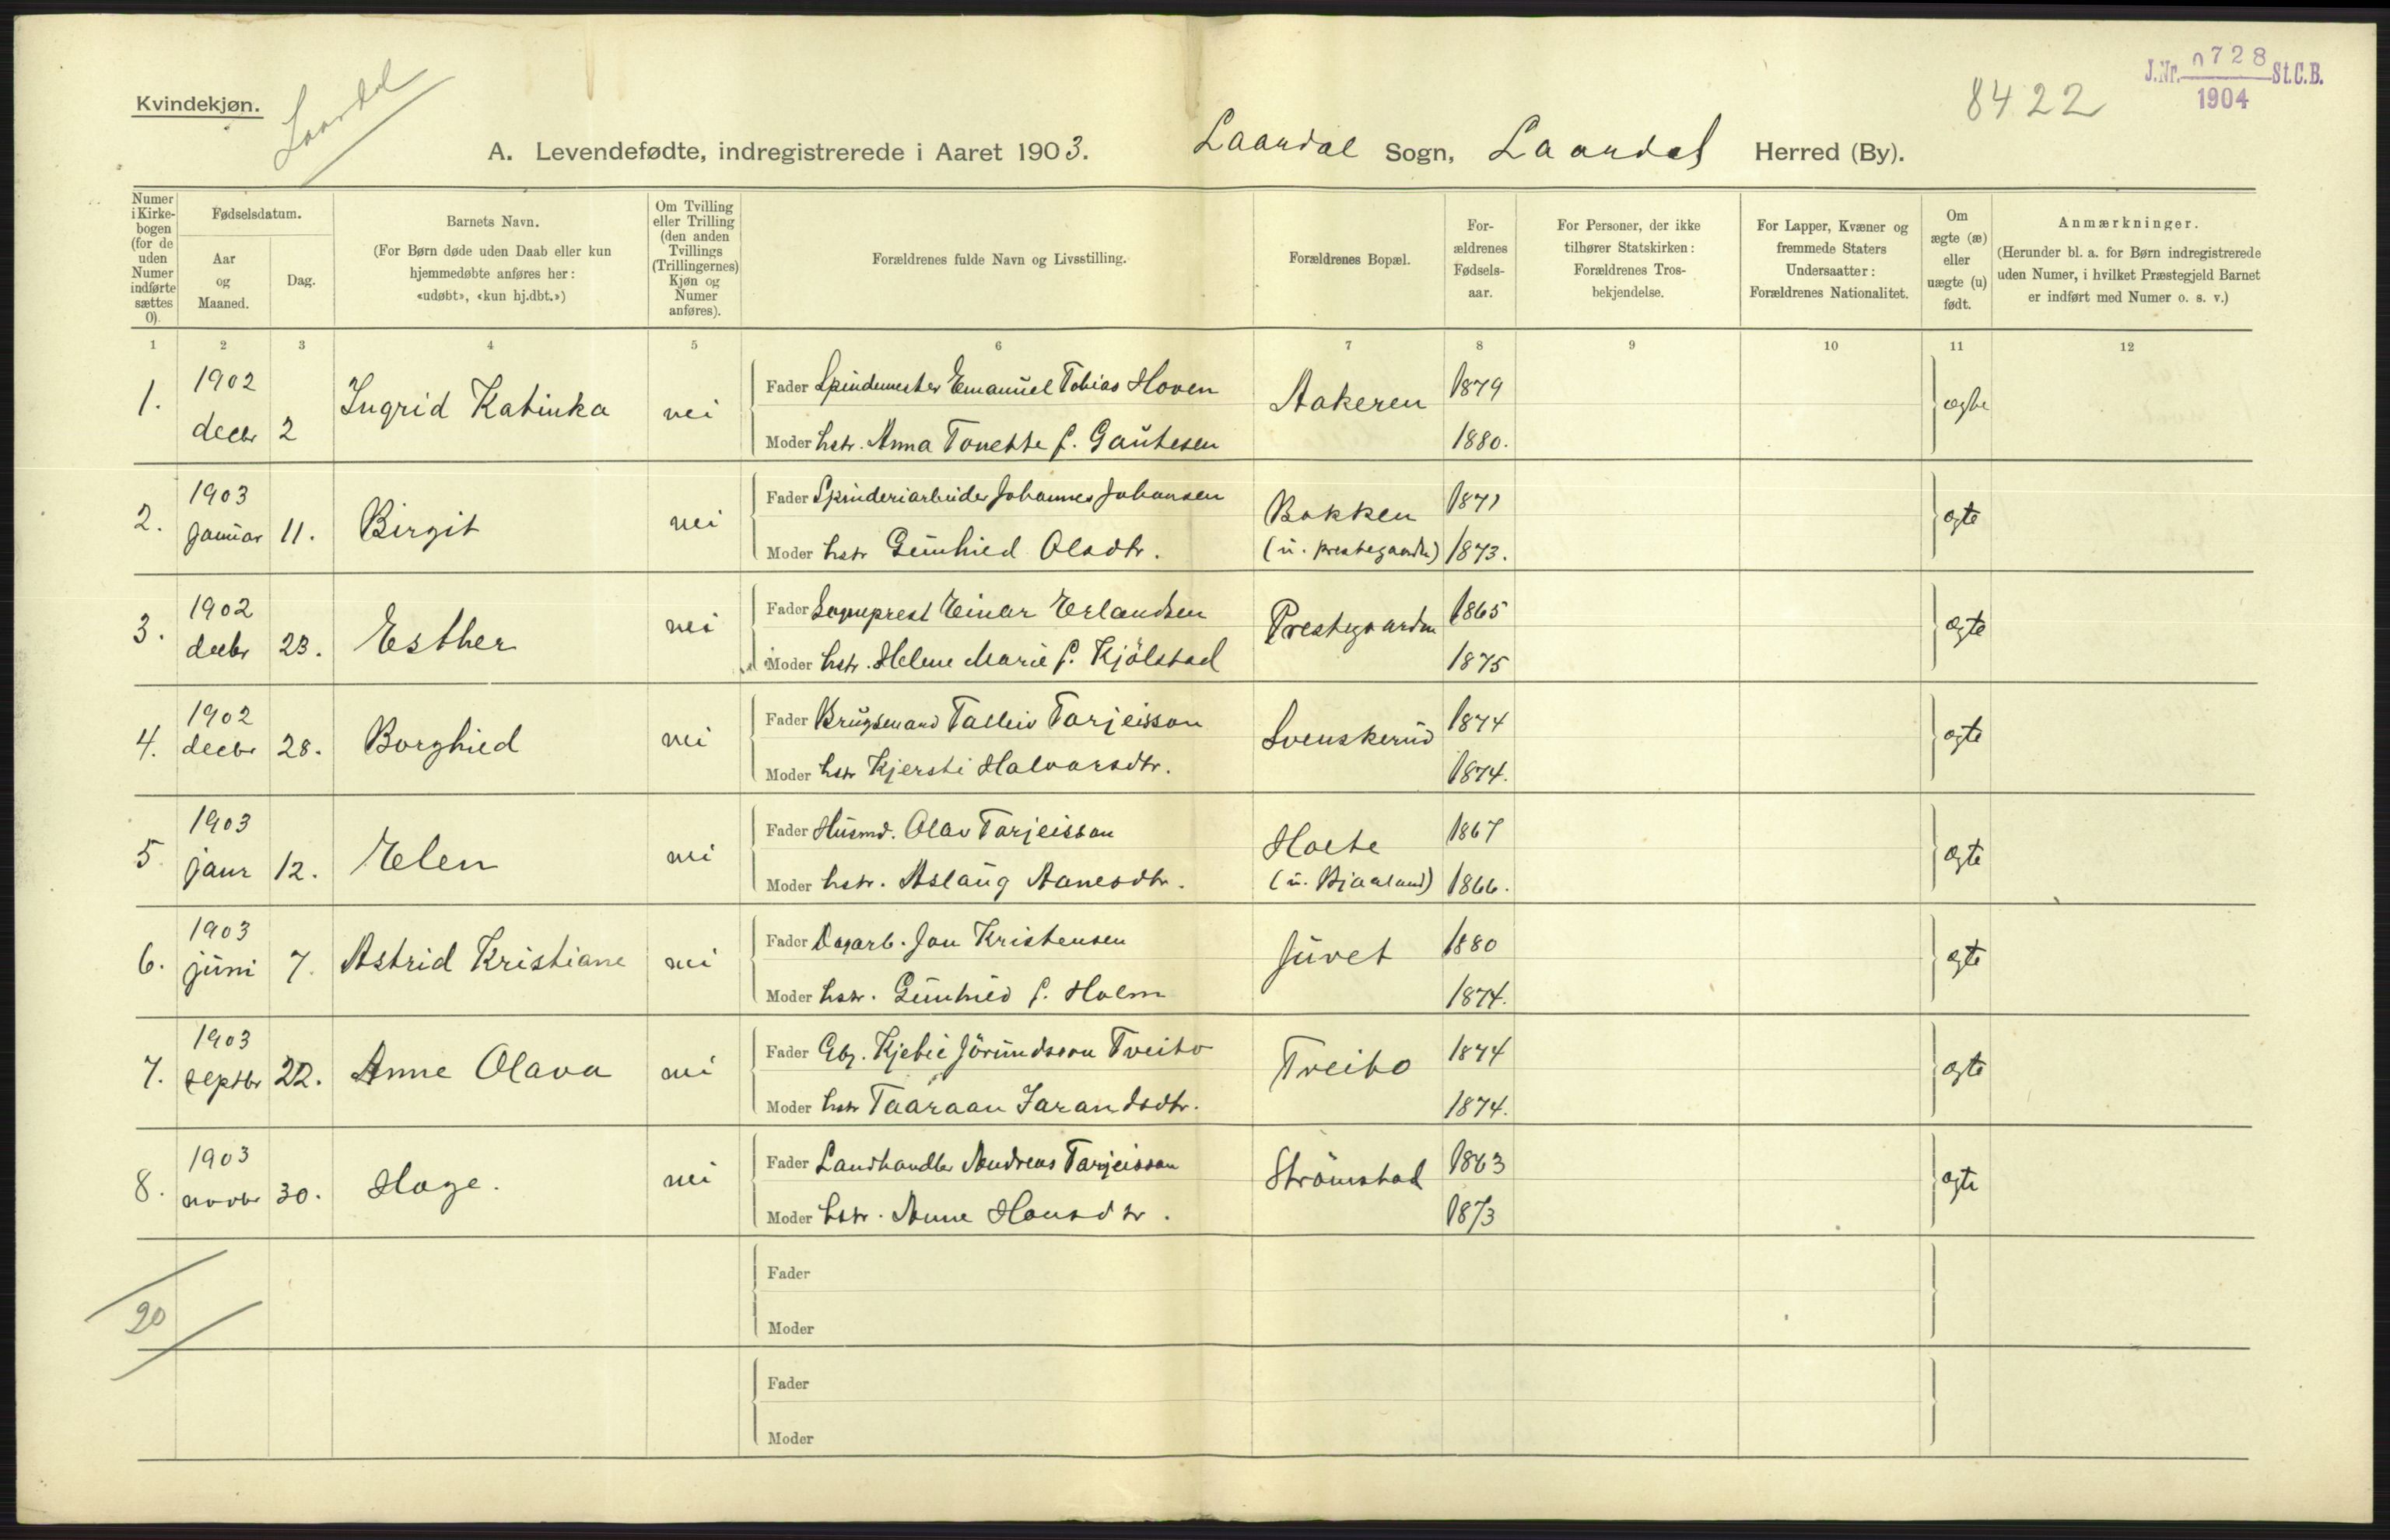 Kvindekjøn.
Laardal
8422
J.Nr. 0728 St.C.B.
1904
A. Levendefødte, indregistrerede i Aaret 1903. Laardal Sogn, Laardal Herred (By).
Numer i Kirkebogen (for de uden Numer indførte sættes 0).
Fødselsdatum.
Aar og Maaned.
Dag.
Barnets Navn.
(For Børn døde uden Daab eller kun hjemmedøbte anføres her: «udøbt», «kun hj.dbt.»)
Om Tvilling eller Trilling (den anden Tvillings (Trillingernes) Kjøn og Numer anføres).
Forældrenes fulde Navn og Livsstilling.
Forældrenes Bopæl.
For-ældrenes Fødsels-aar.
For Personer, der ikke tilhører Statskirken: Forældrenes Tros-bekjendelse.
For Lapper, Kvæner og fremmede Staters Undersaatter: Forældrenes Nationalitet.
Om ægte (æ) eller uægte (u) født.
Anmærkninger.
(Herunder bl. a. for Børn indregistrerede uden Numer, i hvilket Præstegjeld Barnet er indført med Numer o. s. v.)
1 2 3 4 5 6 7 8 9 10 11 12
1. 1902 decbr 2 Ingrid Katinka nei
Fader Spindemester Emanuel Tobias Hoven Aakeren 1879 ægte
Moder hstr. Anna Tonette f. Gautesen 1880.
2. 1903 januar 11. Birgit nei
Fader Spinderiarbeider Johannes Johansen Bakken 1871 ægte
Moder hstr Gunhild Olsdtr. (u. prestegaarden) 1873.
3. 1902 decbr 23. Esther nei
Fader Sogneprest Einar Erlandsen Prestegaarden 1865 ægte
Moder hstr. Helene Marie f. Kjölstad 1875
4. 1902 decbr 28. Borghild nei
Fader Brugsmand Talleiv Tarjeisson Svenskerud 1874 ægte
Moder hstr Kjersti Halvorsdtr. 1874.
5. 1903 janr 12. Elen nei
Fader Husmd. Olav Tarjeisson Holte 1867 ægte
Moder hstr. Aslaug Aanesdtr. (u. Bjaaland) 1866.
6. 1903 juni 7. Astrid Kristiane nei
Fader Dagarb. Jon Kristensen Juvet 1880 ægte
Moder hstr. Gunhild f. Holm 1874.
7. 1903 septbr 22. Anne Olava nei
Fader Gbr. Kjetil Jörundsson Tveito Tveito 1874 ægte
Moder hstr Taaraan Jarandsdtr. 1874.
8. 1903 novbr 30. Hage. nei
Fader Landhandler Andreas Tarjeisson Strömstad 1863 ægte
Moder hstr. Anne Hansdtr. 1873
20
Fader
Moder
Fader
Moder